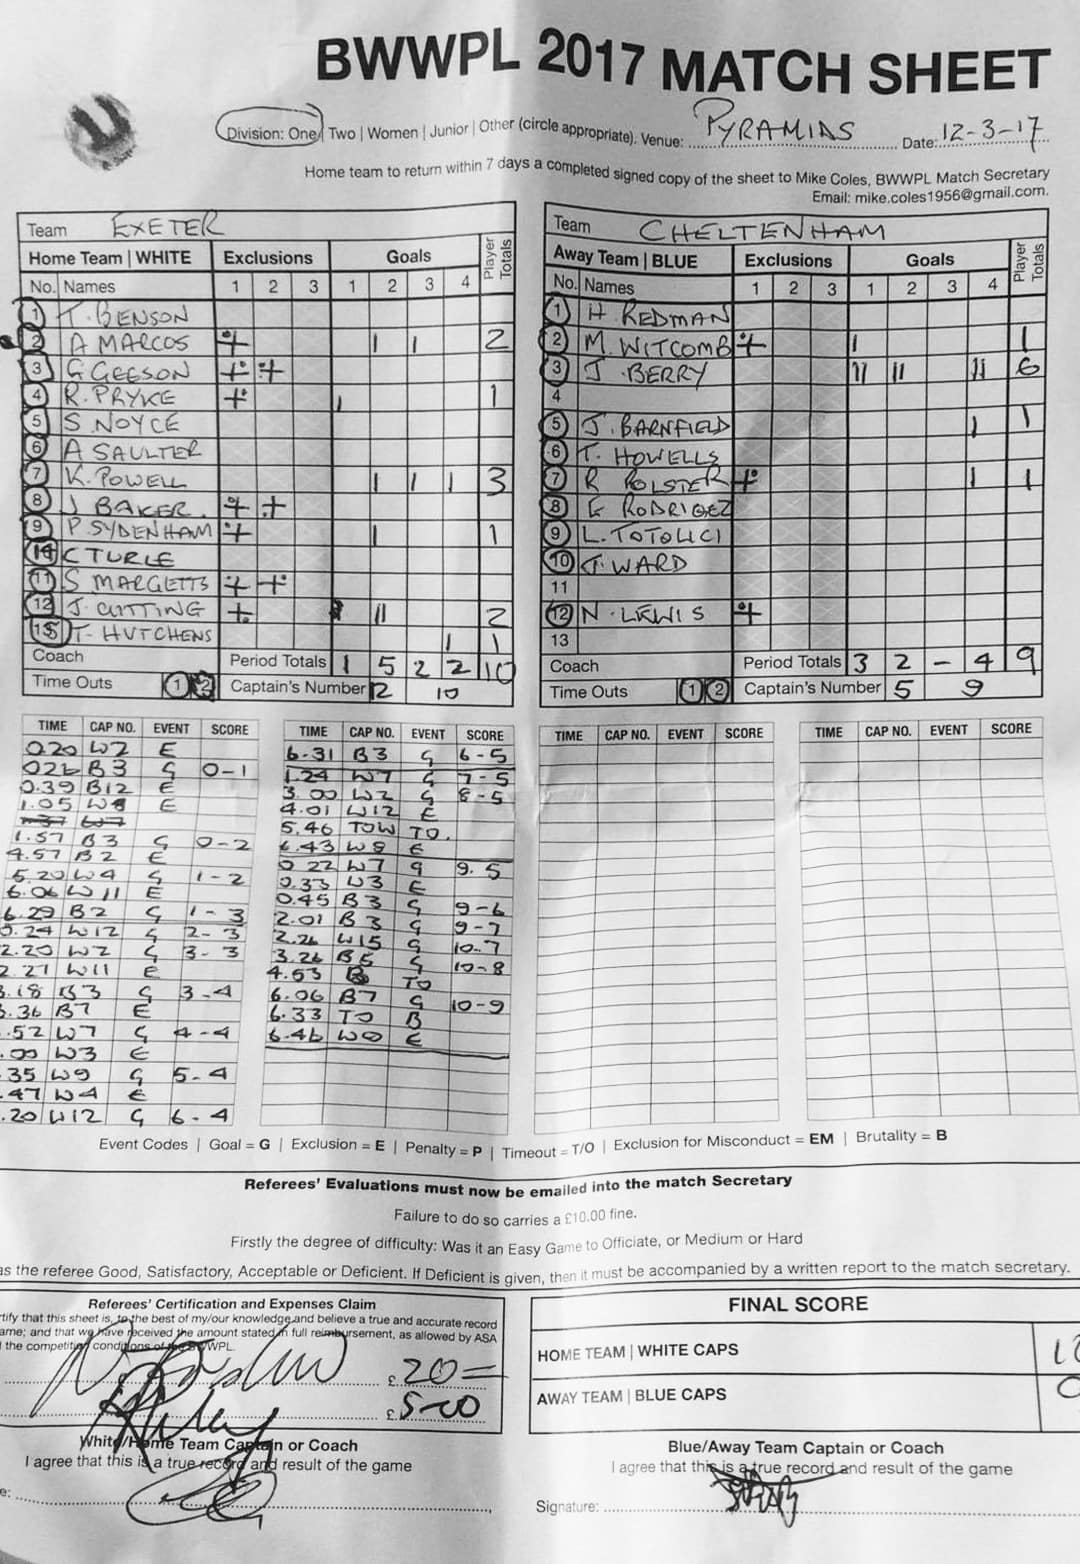 BWWPL 2017 MATCH SHEET
Division: One | Two | Women | Junior | Other (circle appropriate). Venue: PYRAMIDS Date: 12-3-17
Home team to return within 7 days a completed signed copy of the sheet to Mike Coles, BWWPL Match Secretary
Email: mike.coles1956@gmail.com.
Team EXETER
Home Team | WHITE Exclusions Goals Player Totals
No. Names 1 2 3 1 2 3 4
1 T. BENSON
2 A MARCOS + | | 2
3 G GEESON + +
4 R. PRYKE + | 1
5 S NOYCE
6 A SAULTER
7 K. POWELL | | | 3
8 J BAKER. + +
9 P. SYDENHAM + | 1
14 C TURLE
11 S MARGETTS + +
12 J. CUTTING + || 2
15 T. HUTCHENS | 1
Coach Period Totals 1 5 2 2 10
Time Outs 1 2 Captain's Number 2 10
Team CHELTENHAM
Away Team | BLUE Exclusions Goals Player Totals
No. Names 1 2 3 1 2 3 4
1 H. REDMAN
2 M. WITCOMB + | 1
3 J. BERRY || || || 6
4
5 J. BARNFIELD | 1
6 T. HOWELLS
7 R POLSTER + | 1
8 E RODRIGEZ
9 L. TOTOLICI
10 J. WARD
11
12 N. LEWIS +
13
Coach Period Totals 3 2 - 4 9
Time Outs 1 2 Captain's Number 5 9
TIME CAP NO. EVENT SCORE
0.20 W2 E
026 B3 G 0-1
0.39 B12 E
1.05 W8 E
1.57 B3 G 0-2
4.57 B2 E
5.20 W4 G 1-2
6.06 W11 E
6.29 B2 G 1-3
0.24 W12 G 2-3
2.20 W2 G 3-3
2.27 W11 E
3.18 B3 G 3-4
3.36 B7 E
.52 W7 G 4-4
.00 W3 E
35 W9 G 5-4
.47 W4 E
.20 W12 G 6-4
TIME CAP NO. EVENT SCORE
6.31 B3 G 6-5
1.24 W7 G 7-5
3.00 W2 G 8-5
4.01 W12 E
5.46 TOW TO.
6.43 W8 E
0 22 W7 G 9.5
0.33 W3 E
0.45 B3 G 9-6
2.01 B3 G 9-7
2.26 W15 G 10-7
3.26 B5 G 10-8
4.53 B TO
6.06 B7 G 10-9
6.33 TO B
6.46 W9 E
TIME CAP NO. EVENT SCORE
TIME CAP NO. EVENT SCORE
Event Codes | Goal = G | Exclusion = E | Penalty = P | Timeout = T/O | Exclusion for Misconduct = EM | Brutality = B
Referees' Evaluations must now be emailed into the match Secretary
Failure to do so carries a £10.00 fine.
Firstly the degree of difficulty: Was it an Easy Game to Officiate, or Medium or Hard
as the referee Good, Satisfactory, Acceptable or Deficient. If Deficient is given, then it must be accompanied by a written report to the match secretary.
Referees' Certification and Expenses Claim
tify that this sheet is, to the best of my/our knowledge and believe a true and accurate record
ame; and that we have received the amount stated in full reimbursement, as allowed by ASA
the competition conditions of the BWWPL.
£ 20=
£ 5-00
White/Home Team Captain or Coach
I agree that this is a true record and result of the game
FINAL SCORE
HOME TEAM | WHITE CAPS
AWAY TEAM | BLUE CAPS
Blue/Away Team Captain or Coach
I agree that this is a true record and result of the game
Signature: